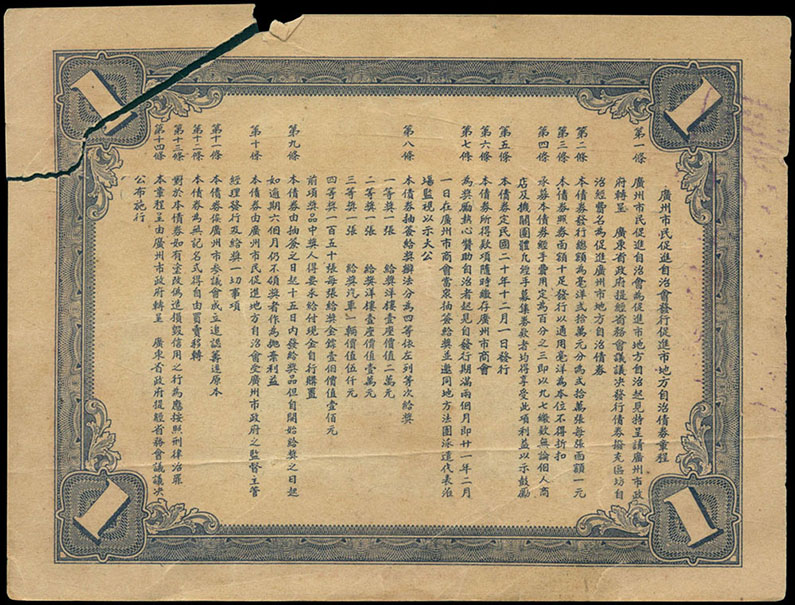 廣州市民促進自治會發行促進市地方自治債券章程
第一條 廣州市民促進自治會為促進市地方自治起見特呈請廣州市政
府轉呈 廣東省政府提經省務會議議決發行債券撥充區坊自
治經費名為促進廣州市地方自治債券
第二條 本債券發行總額為毫洋弍拾萬元分為弍拾萬張每張面額一元
第三條 本債券照券面額十足發行以通用毫洋為本位不得折扣
第四條 承募本債券經手費用定為百分之三即以九七繳款無論個人商
店及機關團體凡經手募集券款者均得享受此項利益以示鼓勵
第五條 本債券定民國二十年十二月一日發行
第六條 本債券所得款項隨時繳存廣州市商會
第七條 為獎勵熱心贊助自治者起見自發行期滿兩個月即廿一年二月
一日在廣州市商會當衆抽籤給獎並邀同地方法團派遣代表蒞
場監視以示大公
第八條 本債券抽籤給獎辦法分為四等依左列等次給獎
一等獎一張 給獎洋樓壹座價值二萬元
二等獎一張 給獎洋樓壹座價值壹萬元
三等獎一張 給獎汽車一輛價值伍仟元
四等獎一百五十張每張給獎金鏢壹個價值壹佰元
前項獎品中獎人得要求給付現金自行購置
第九條 本債券由抽簽之日起十五日內發給獎品但自開始給獎之日起
如逾期六個月仍不領獎者作為拋棄利益
第十條 本債券由廣州市民促進地方自治會受廣州市政府之監督主管
經理發行及給獎一切事項
第十一條 本債券俟廣州市參議會成立追認籌還原本
第十二條 本債券為無記名式得自由買賣移轉
第十三條 對於本債券如有塗改偽造損毀信用之行為應按照刑律治罪
第十四條 本章程呈由廣州市政府轉呈 廣東省政府提經省務會議議決
公布施行
1
1
1
1